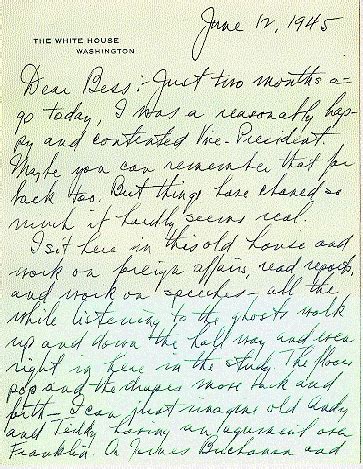 June 12, 1945
THE WHITE HOUSE
WASHINGTON
Dear Bess:- Just two months a-
go today, I was a reasonably hap-
py and contented Vice-President.
Maybe you can remember that far
back too. But things have changed so
much it hardly seems real.
I sit here in this old house and
work on foreign affairs, read reports,
and work on speeches - all the
while listening to the ghosts walk
up and down the hall way and even
right in here in the study. The floors
pop and the drapes move back and
forth - I can just imagine old Andy
and Teddy having an argument over
Franklin. Or James Buchanan and